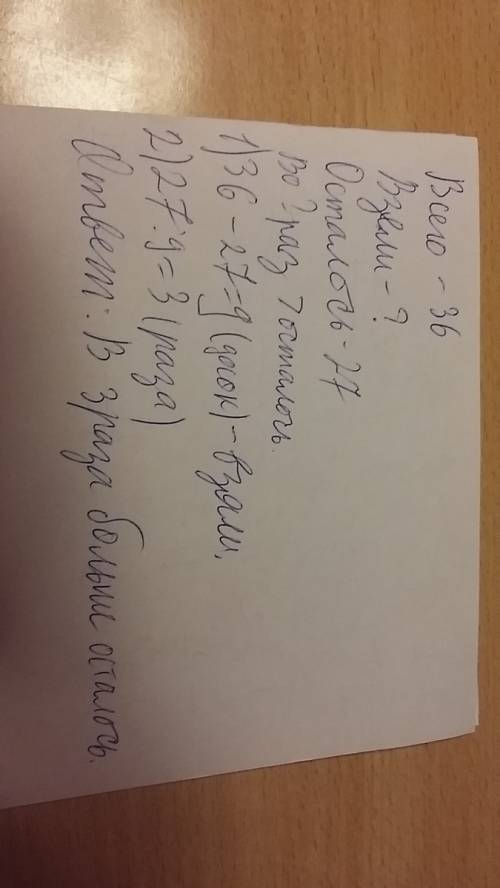 Всего - 36
Взяли - ?
Осталось - 27
Во ? раз > осталось.
1) 36 - 27 = 9 (досок) - взяли,
2) 27 : 9 = 3 (раза)
Ответ: В 3 раза больше осталось.